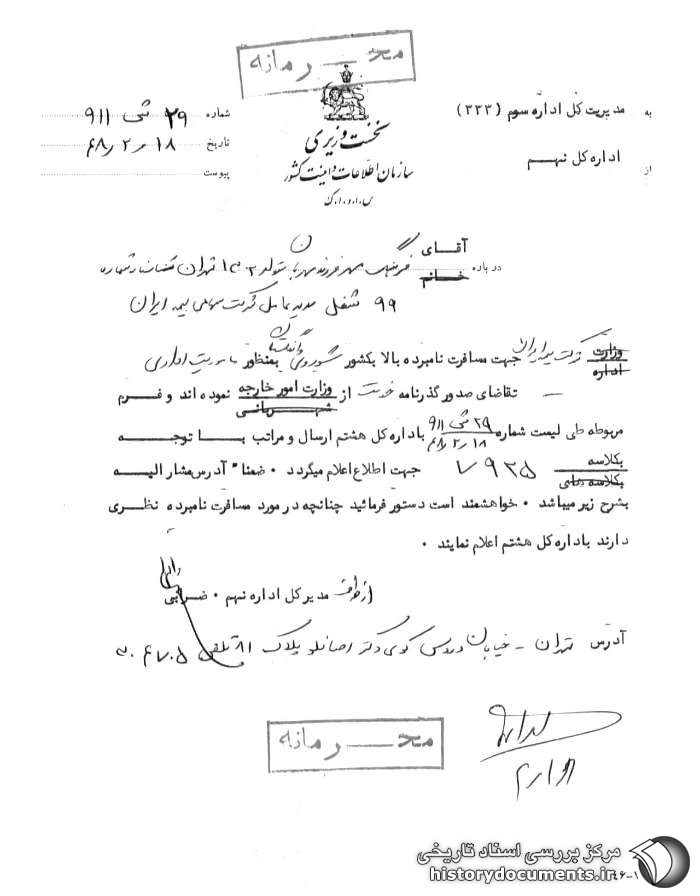 محرمانه
به مدیریت کل اداره سوم (۳۳۳)
از اداره کل نهم
نخست وزیری
سازمان اطلاعات و امنیت کشور
س.ا.و.ا.ک
شماره ۲۹ ثی ۹۱۱
تاریخ ۱۸ ر ۲ ر ۶۸
پیوست
درباره آقای خانم فرهنگ مهر فرزند مهربان متولد تهران شناسنامه شماره
۹۹ شغل مدیر عامل شرکت سهامی بیمه ایران
وزارت اداره شرکت بیمه ایران جهت مسافرت نامبرده بالا بکشور شوروی و انگلستان بمنظور ماموریت اداری
تقاضای صدور گذرنامه خدمت از وزارت امور خارجه شهربانی نموده اند و فرم
مربوطه طی لیست شماره ۲۹ ثی ۹۱۱ ۱۸ ر ۲ ر ۶۸ باداره کل هشتم ارسال و مراتب با توجه
بکلاسه بکلاسه های ۷۹۲۵ جهت اطلاع اعلام میگردد . ضمنا" آدرس مشار الیه
بشرح زیر میباشد . خواهشمند است دستور فرمائید چنانچه در مورد مسافرت نامبرده نظری
دارند باداره کل هشتم اعلام نمایند .
از طرف مدیر کل اداره نهم . ضرابی
آدرس تهران - خیابان کوی دکتر پلاک ۸۱ تلفن
محرمانه
مرکز بررسی اسناد تاریخی
historydocuments.ir